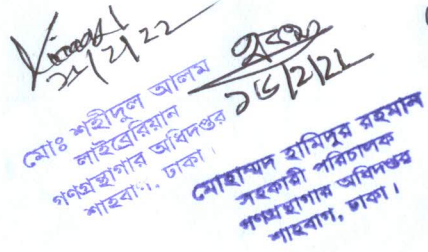 ২১/২/২২
মোঃ শহীদুল আলম
লাইব্রেরিয়ান
গণগ্রন্থাগার অধিদপ্তর
শাহবাগ, ঢাকা।
১৬/২/২১
মোহাম্মদ হামিদুর রহমান
সহকারী পরিচালক
গণগ্রন্থাগার অধিদপ্তর
শাহবাগ, ঢাকা।